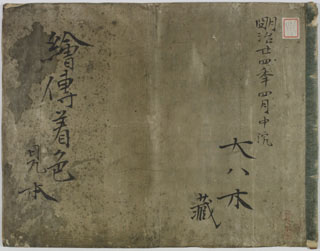 明治廿四年四月中浣
大八木
藏
繪傳着色
見本